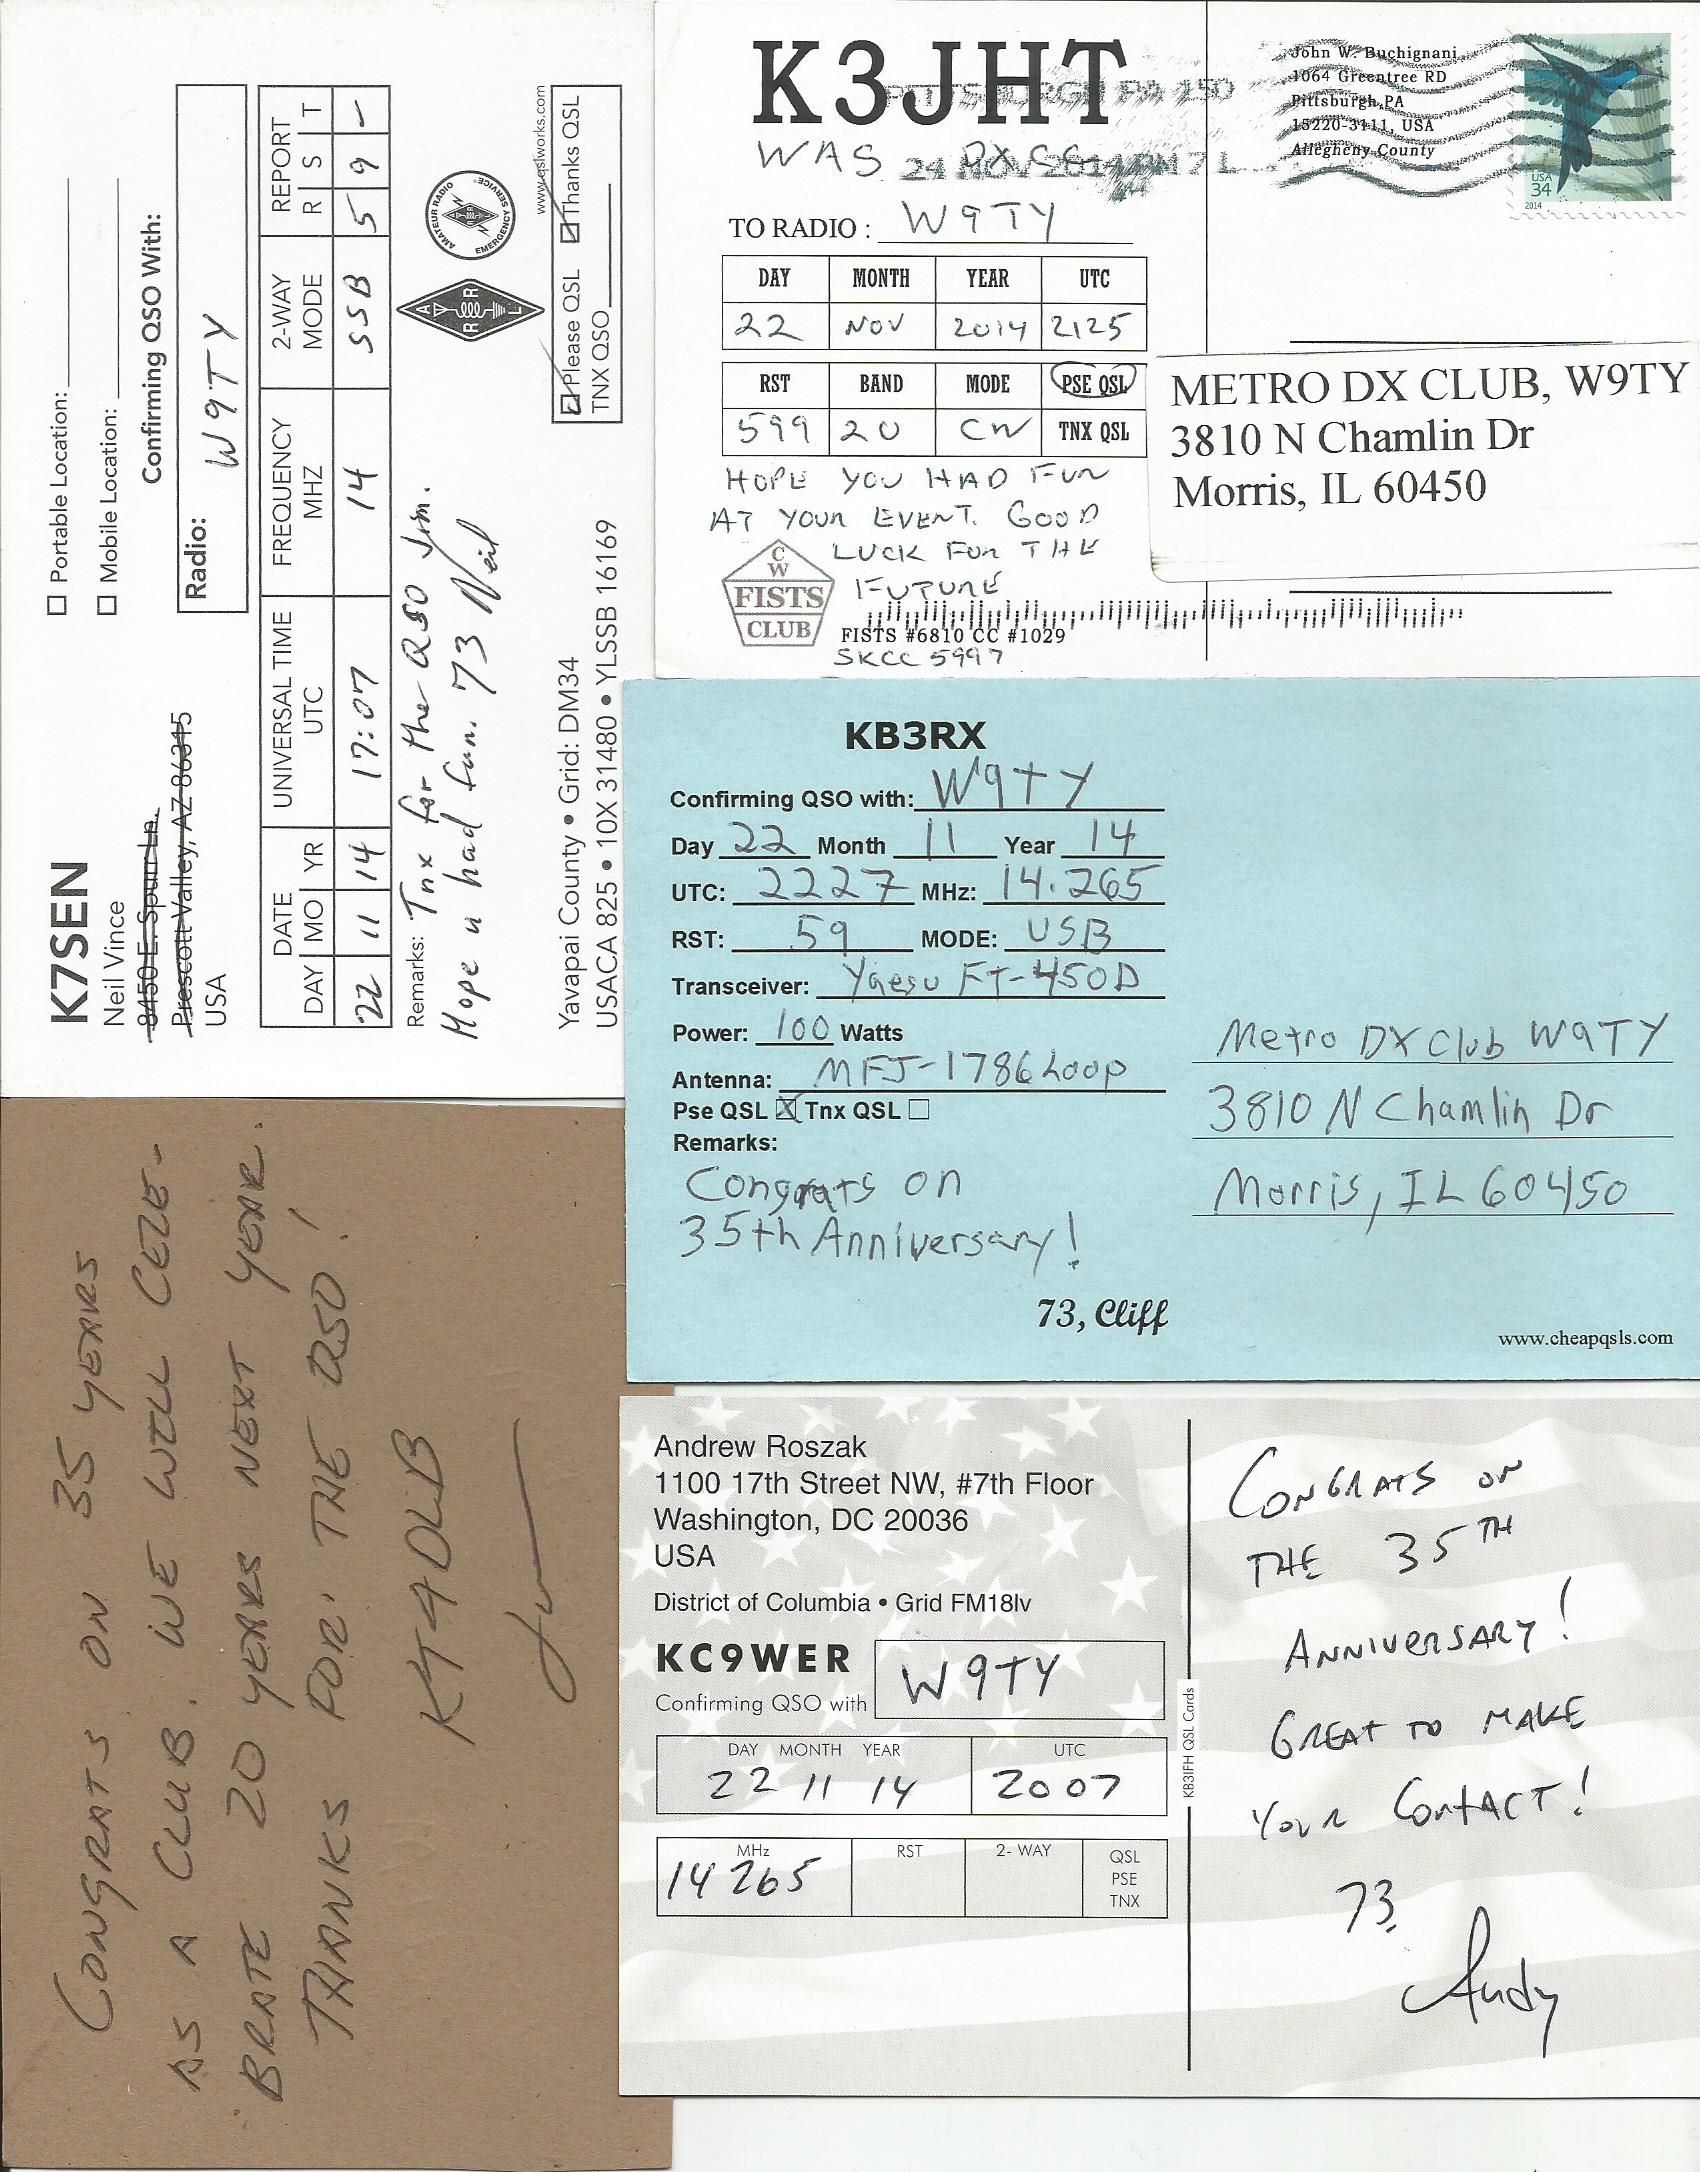 K7SEN
Neil Vince
8450 E. Spur Ln.
Prescott Valley, AZ 86315
USA
☐ Portable Location:
☐ Mobile Location:
Confirming QSO With:
Radio: W9TY
DATE UNIVERSAL TIME FREQUENCY 2-WAY REPORT
DAY MO YR UTC MHZ MODE R S T
22 11 14 17:07 14 SSB 5 9 -
Remarks: Tnx for the QSO Jim.
Hope u had fun. 73 Neil
AMATEUR RADIO
EMERGENCY SERVICE
A R R L
Yavapai County • Grid: DM34
USACA 825 • 10X 31480 • YLSSB 16169
www.qslworks.com
☑ Please QSL ☑ Thanks QSL
TNX QSO
K3JHT
PITTSBURGH PA 150
WAS
24 NOV 2014 PM 7 L
John W. Buchignani
1064 Greentree RD
Pittsburgh,PA
15220-3111, USA
Allegheny County
USA
34
2014
TO RADIO : W9TY
DAY MONTH YEAR UTC
22 NOV 2014 2125
RST BAND MODE PSE QSL
599 20 CW TNX QSL
HOPE YOU HAD FUN
AT YOUR EVENT. GOOD
LUCK FOR THE
FUTURE
CW
FISTS
CLUB
FISTS #6810 CC #1029
SKCC 5997
METRO DX CLUB, W9TY
3810 N Chamlin Dr
Morris, IL 60450
KB3RX
Confirming QSO with: W9TY
Day 22 Month 11 Year 14
UTC: 2227 MHz: 14.265
RST: 59 MODE: USB
Transceiver: Yaesu FT-450D
Power: 100 Watts
Antenna: MFJ-1786 Loop
Pse QSL ☒ Tnx QSL ☐
Remarks:
Congrats on
35th Anniversary!
73, Cliff
Metro DX Club W9TY
3810 N Chamlin Dr
Morris, IL 60450
www.cheapqsls.com
CONGRATS ON 35 YEARS
AS A CLUB. WE WILL CELE-
BRATE 20 YEARS NEXT YEAR.
THANKS FOR THE QSO!
KT4DLB
Andrew Roszak
1100 17th Street NW, #7th Floor
Washington, DC 20036
USA
District of Columbia • Grid FM18lv
KC9WER
Confirming QSO with W9TY
DAY MONTH YEAR UTC
22 11 14 2007
MHz RST 2- WAY QSL
PSE
TNX
14 265
KB3IFH QSL Cards
CONGRATS ON
THE 35TH
ANNIVERSARY!
GREAT TO MAKE
YOUR CONTACT!
73,
Andy